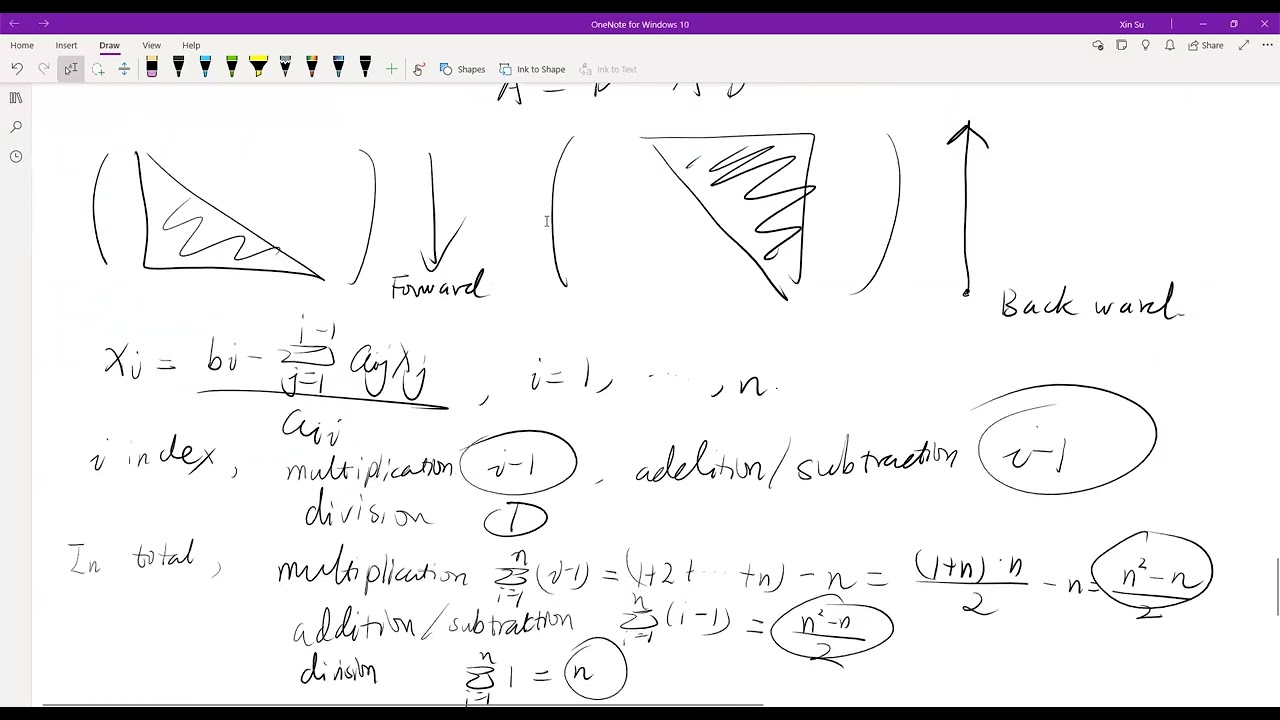 OneNote for Windows 10
Xin Su
Home Insert Draw View Help
Share
Shapes Ink to Shape Ink to Text
Forward
Back ward
xi = (bi - Σ_{j=1}^{i-1} aij xj) / aii , i = 1, ... , n.
i index, multiplication i-1 , addition/subtraction i-1
division 1
In total, multiplication Σ_{i=1}^{n} (i-1) = (1+2+...+n) - n = (1+n)·n / 2 - n = (n²-n) / 2
addition/subtraction Σ_{i=1}^{n} (i-1) = (n²-n) / 2
division Σ_{i=1}^{n} 1 = n